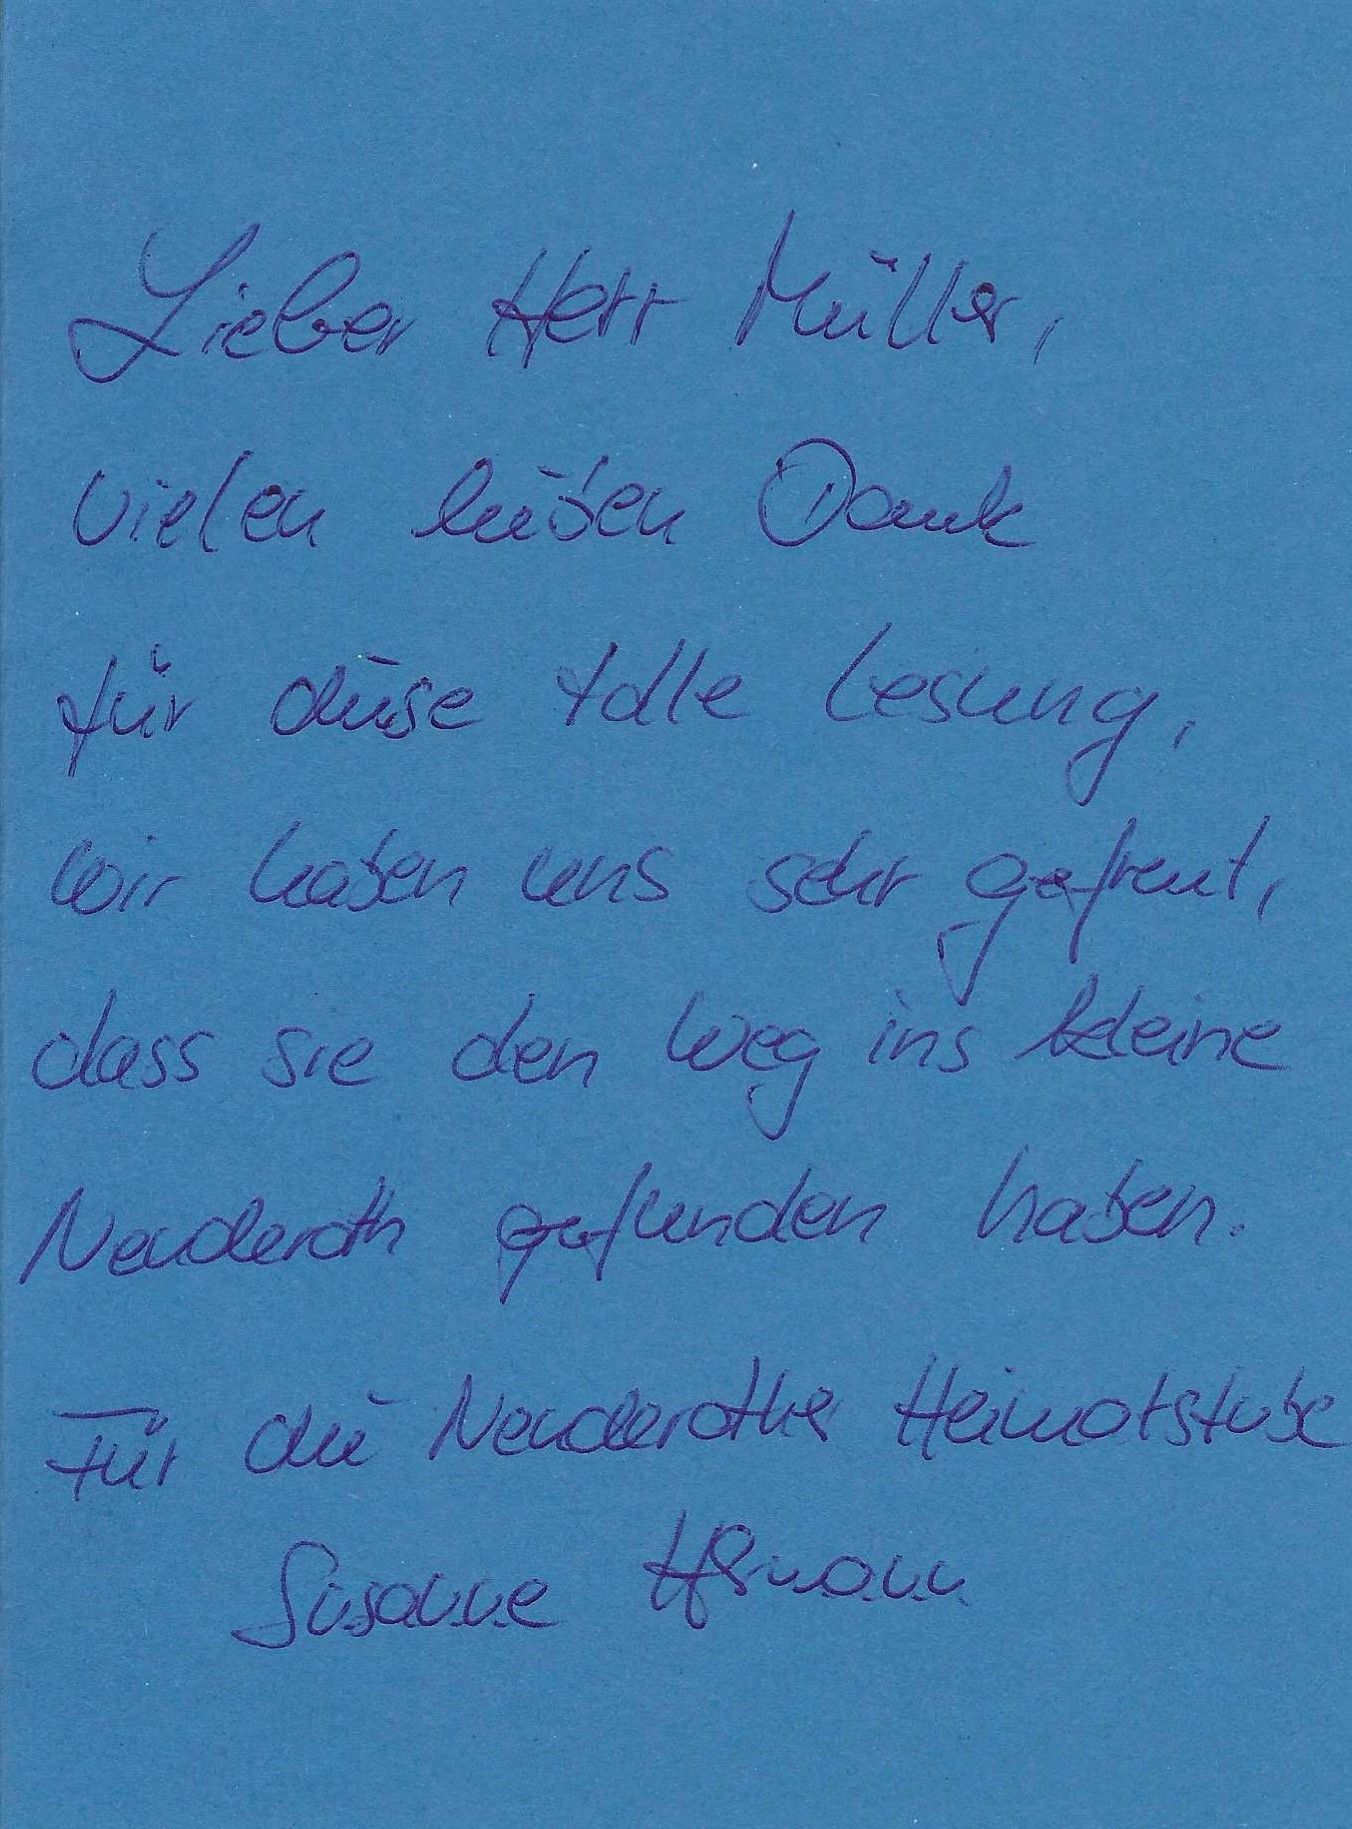 Lieber Herr Müller,
vielen lieben Dank
für diese tolle Lesung,
wir haben uns sehr gefreut,
dass sie den Weg ins kleine
Neuderoth gefunden haben.
Für die Neuderother Heimatstube
Susanne